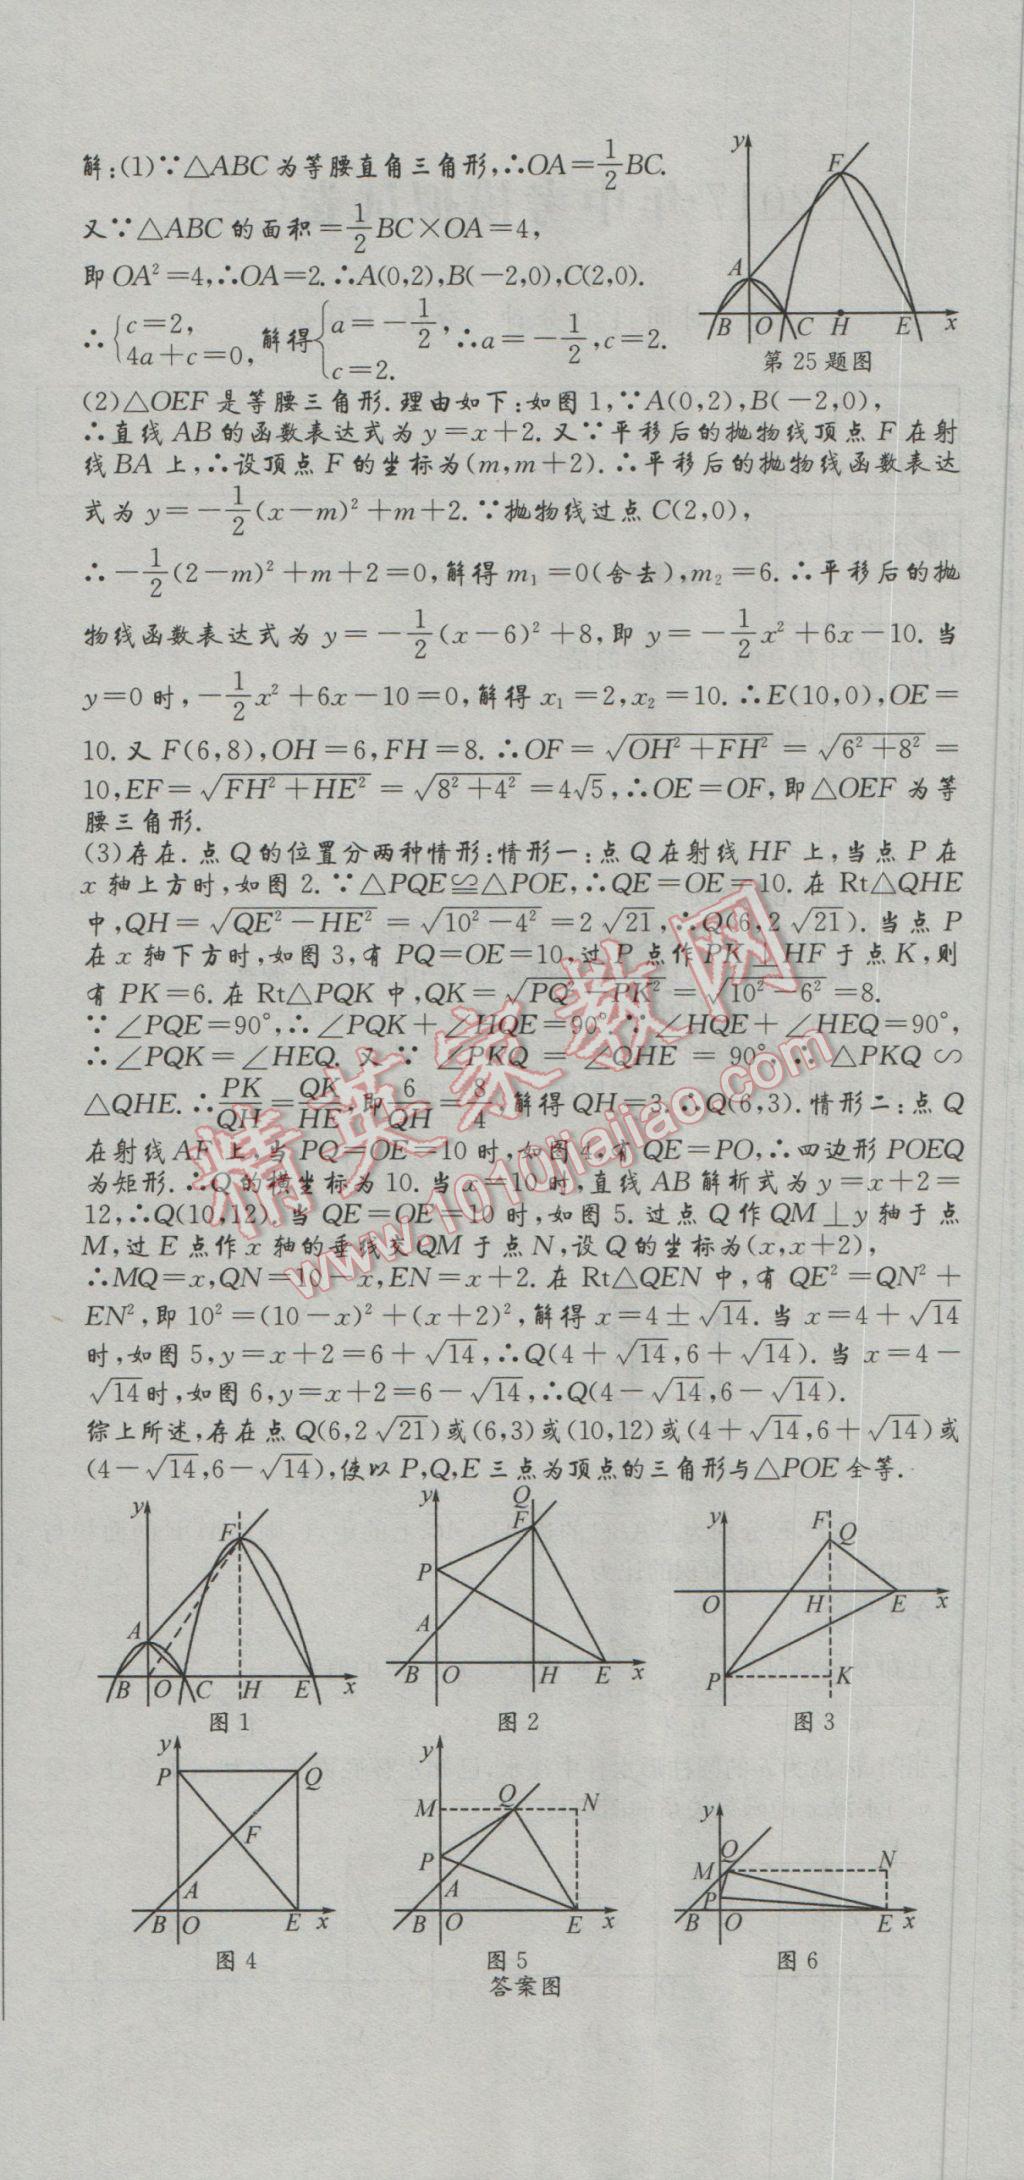 解:(1)∵△ABC为等腰直角三角形,∴OA=1/2BC.
又∵△ABC的面积=1/2BC×OA=4,
即OA²=4,∴OA=2.∴A(0,2),B(-2,0),C(2,0).
∴{c=2, 4a+c=0, 解得{a=-1/2, c=2. ∴a=-1/2,c=2.
y
F
A
B O C H E x
第25题图
(2)△OEF是等腰三角形.理由如下:如图1,∵A(0,2),B(-2,0),
∴直线AB的函数表达式为y=x+2.又∵平移后的抛物线顶点F在射
线BA上,∴设顶点F的坐标为(m,m+2).∴平移后的抛物线函数表达
式为y=-1/2(x-m)²+m+2.∵抛物线过点C(2,0),
∴-1/2(2-m)²+m+2=0,解得m₁=0(舍去),m₂=6.∴平移后的抛
物线函数表达式为y=-1/2(x-6)²+8,即y=-1/2x²+6x-10.当
y=0时,-1/2x²+6x-10=0,解得x₁=2,x₂=10.∴E(10,0),OE=
10.又F(6,8),OH=6,FH=8.∴OF=√(OH²+FH²)=√(6²+8²)=
10,EF=√(FH²+HE²)=√(8²+4²)=4√5,∴OE=OF,即△OEF为等
腰三角形.
(3)存在.点Q的位置分两种情形:情形一:点Q在射线HF上,当点P在
x轴上方时,如图2.∵△PQE≌△POE,∴QE=OE=10.在Rt△QHE
中,QH=√(QE²-HE²)=√(10²-4²)=2√21,∴Q(6,2√21).当点P
在x轴下方时,如图3,有PQ=OE=10,过P点作PK⊥HF于点K,则
有PK=6.在Rt△PQK中,QK=√(PQ²-PK²)=√(10²-6²)=8.
∵∠PQE=90°,∴∠PQK+∠HQE=90°.∵∠HQE+∠HEQ=90°,
∴∠PQK=∠HEQ.又∵∠PKQ=∠QHE=90°,∴△PKQ∽
△QHE.∴PK/QH=QK/HE,即6/QH=8/4,解得QH=3.∴Q(6,3).情形二:点Q
在射线AF上,当PQ=OE=10时,如图4,有QE=PO,∴四边形POEQ
为矩形.∴Q的横坐标为10.当x=10时,直线AB解析式为y=x+2=
12,∴Q(10,12).当QE=OE=10时,如图5.过点Q作QM⊥y轴于点
M,过E点作x轴的垂线交QM于点N,设Q的坐标为(x,x+2),
∴MQ=x,QN=10-x,EN=x+2.在Rt△QEN中,有QE²=QN²+
EN²,即10²=(10-x)²+(x+2)²,解得x=4±√14.当x=4+√14
时,如图5,y=x+2=6+√14,∴Q(4+√14,6+√14).当x=4-
√14时,如图6,y=x+2=6-√14,∴Q(4-√14,6-√14).
综上所述,存在点Q(6,2√21)或(6,3)或(10,12)或(4+√14,6+√14)或
(4-√14,6-√14),使以P,Q,E三点为顶点的三角形与△POE全等.
y
F
A
B O C H E x
图1
y
Q
F
P
A
B O H E x
图2
y F
Q
O H E x
P K
图3
y
P Q
F
A
B O E x
图4
y
M Q N
P
A
B O E x
图5
y
Q
M N
P
B O E x
图6
答案图
精英家教网
www.1010jiajiao.com